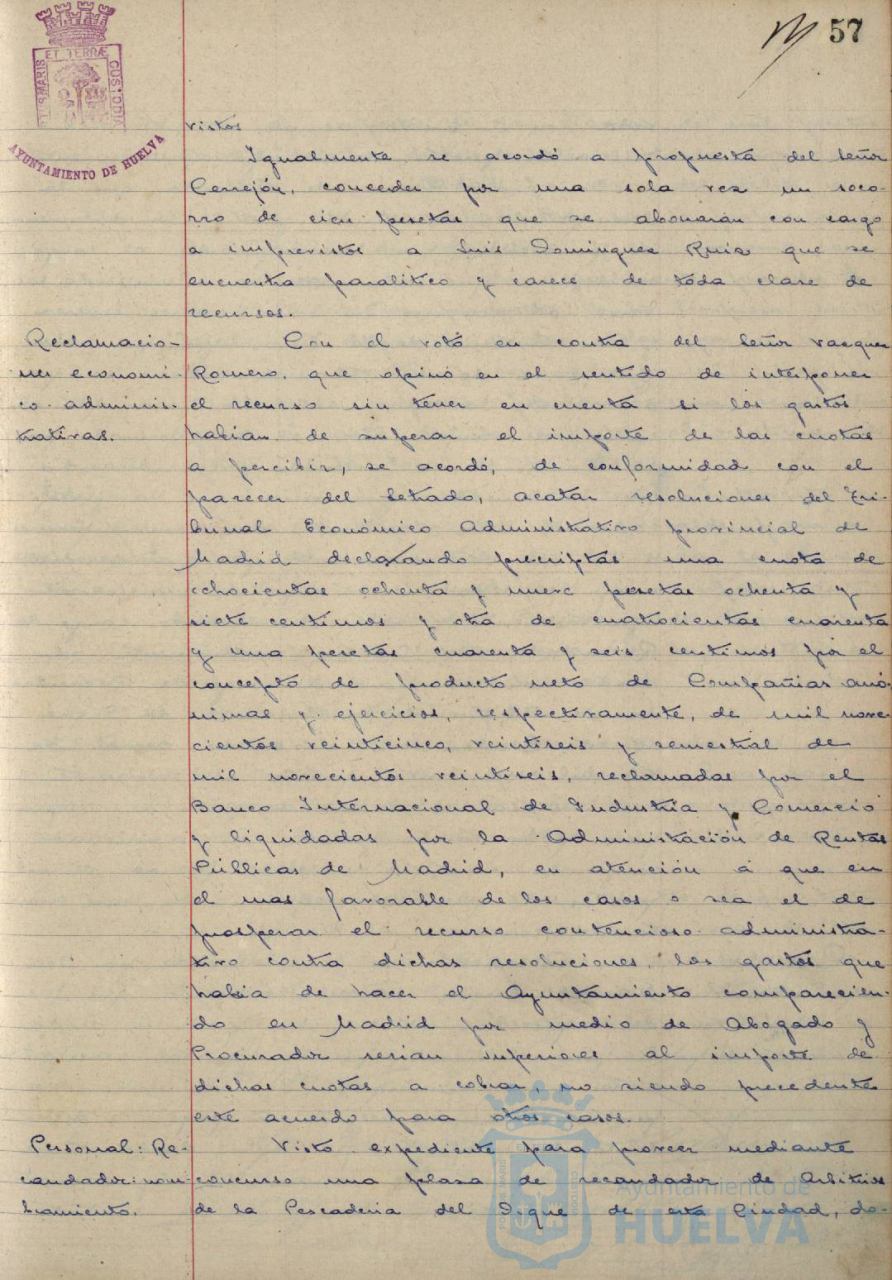 57
PORTUS MARIS ET TERRÆ CUSTODIA
AYUNTAMIENTO DE HUELVA
vistos
Igualmente se acordó a propuesta del Señor
Cerrejón, conceder por una sola vez un soco-
rro de cien pesetas que se abonarán con cargo
a imprevistos a Luis Dominguez Ruiz que se
encuentra paralitico y carece de toda clase de
recursos.
Reclamacio-
nes economi-
co-adminis-
trativas.
Con el voto en contra del Señor Vazquez
Romero, que opinó en el sentido de interponer
el recurso sin tener en cuenta si los gastos
habian de superar el importe de las cuotas
a percibir, se acordó, de conformidad con el
parecer del Letrado, acatar resoluciones del Tri-
bunal Económico Administrativo provincial de
Madrid declarando prescriptas una cuota de
ochocientas ochenta y nueve pesetas ochenta y
siete centimos y otra de cuatrocientas cuarenta
y una pesetas cuarenta y seis centimos por el
concepto de producto neto de Compañias anó-
nimas y ejercicios, respectivamente, de mil nove-
cientos veinticinco, veintiseis y semestral de
mil novecientos veintiseis, reclamadas por el
Banco Internacional de Industria y Comercio
y liquidadas por la Administración de Rentas
Públicas de Madrid, en atención á que en
el mas favorable de los casos o sea el de
prosperar el recurso contencioso-administra-
tivo contra dichas resoluciones, los gastos que
habia de hacer el Ayuntamiento comparecien-
do en Madrid por medio de Abogado y
Procurador serian superiores al importe de
dichas cuotas a cobrar, no siendo precedente
este acuerdo para otros casos.
Personal: Re-
caudador: nom-
bramiento.
Visto expediente para proveer mediante
concurso una plaza de recaudador de Arbitrios
de la Pescaderia del Dique de esta Ciudad, do-
Ayuntamiento de
HUELVA